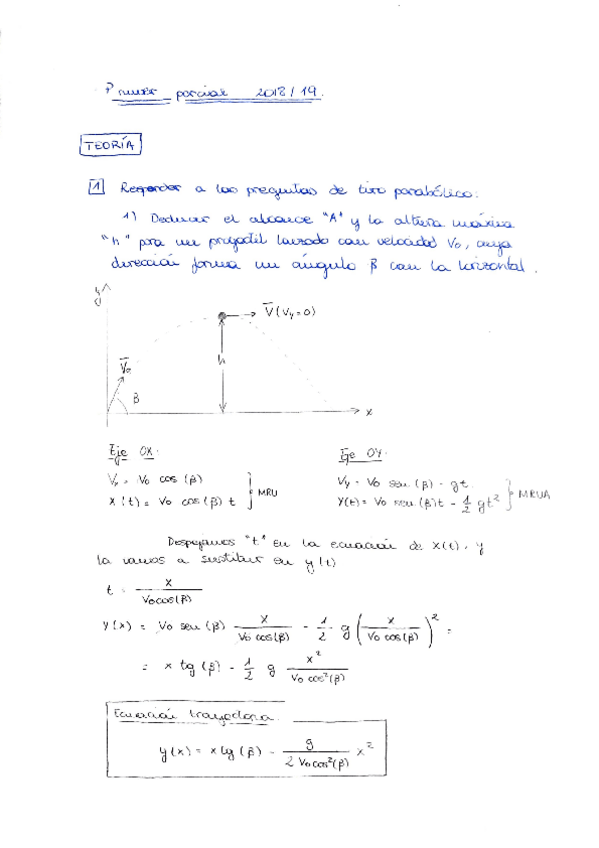 Primer parcial 2018/19.
TEORÍA
1 Responder a las preguntas de tiro parabólico:
1) Deducir el alcance "A" y la altura máxima
"h" para un proyectil lanzado con velocidad V₀, cuya
dirección forma un ángulo β con la horizontal.
y
V (Vy=0)
V₀
h
β
x
Eje OX.
Vx = V₀ cos (β)
X(t) = V₀ cos (β) t
MRU
Eje OY.
Vy = V₀ sen (β) - gt.
Y(t) = V₀ sen (β)t - 1/2 gt²
MRUA
Despejamos "t" en la ecuación de x(t), y
la vamos a sustituir en y(t)
t = x / V₀cos(β)
y(x) = V₀ sen (β) x / V₀ cos(β) - 1/2 g (x / V₀ cos(β))² =
= x tg (β) - 1/2 g x² / V₀ cos²(β)
Ecuación trayectoria.
y(x) = x tg (β) - g / 2 V₀ cos²(β) x²